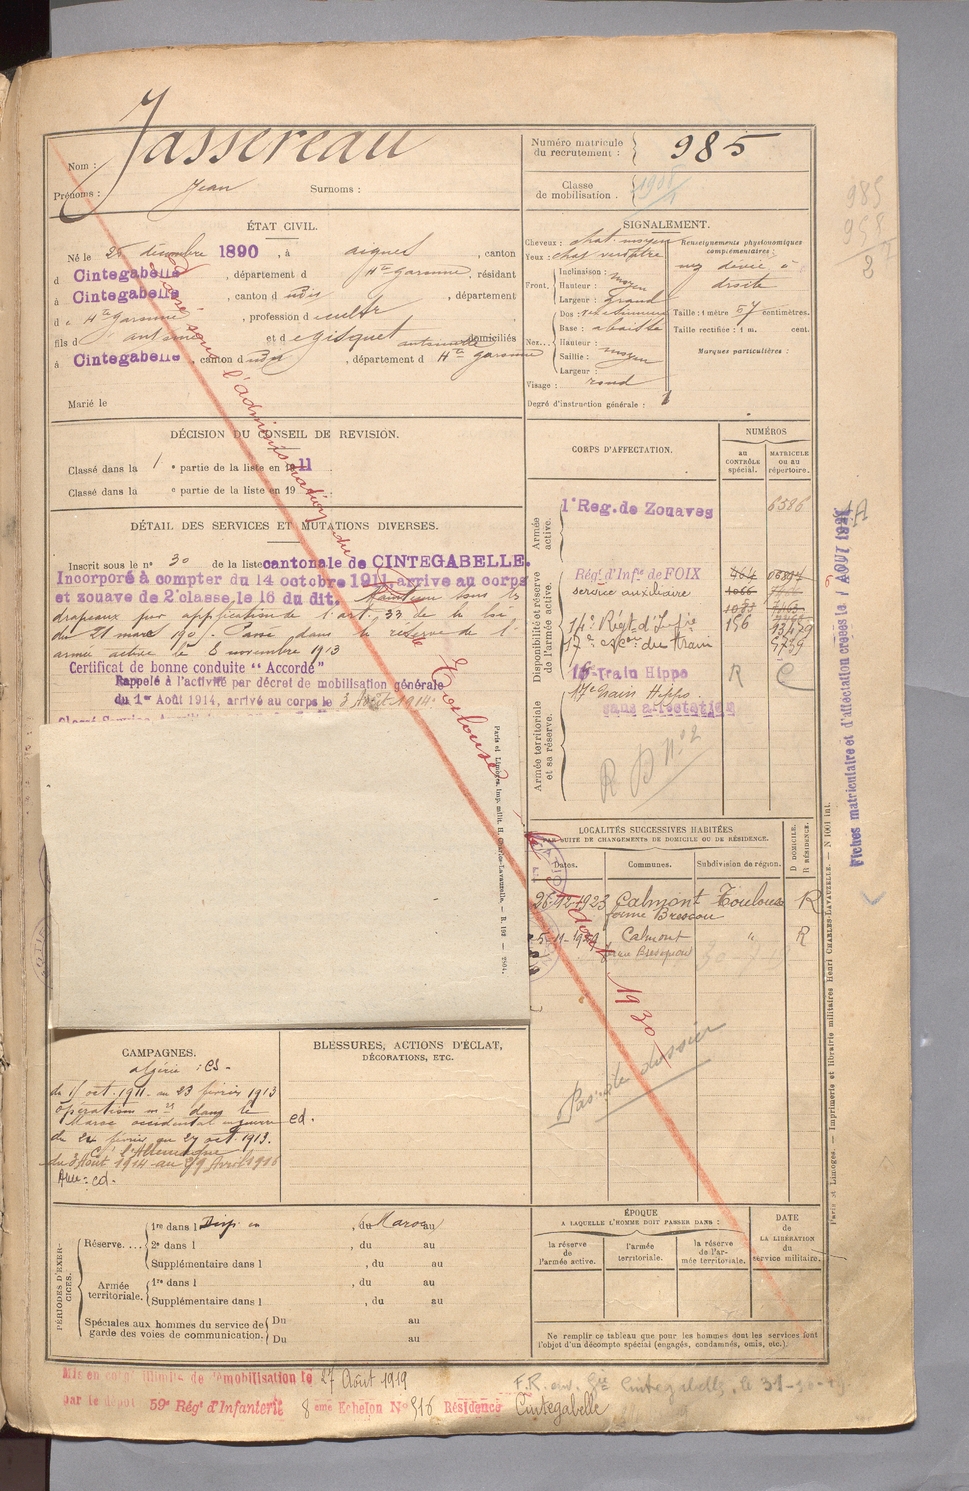 Nom : Jassereau
Prénoms : Jean Surnoms :
Numéro matricule du recrutement : 985
Classe de mobilisation.
ÉTAT CIVIL.
Né le 25 décembre 1890, à aignes, canton
d Cintegabelle, département d Hte garonne, résidant
à Cintegabelle, canton d udit, département
d e Hte garonne, profession d e cultr
fils d antoine et d e gisquet antoinette domiciliés
à Cintegabelle, canton d udit, département d Hte garonne
Marié le
SIGNALEMENT.
Cheveux : chat. moyen
Yeux : chat verdâtre
Front, Inclinaison : moyen
Hauteur :
Largeur : grand
Nez... Dos : rectiligne
Base : abaissée
Hauteur :
Saillie : moyen
Largeur :
Visage : rond
Renseignements physionomiques complémentaires :
nez dévié à droite
Taille : 1 mètre 57 centimètres.
Taille rectifiée : 1 m. cent.
Marques particulières :
Degré d'instruction générale :
DÉCISION DU CONSEIL DE REVISION.
Classé dans la 1 e partie de la liste en 1911
Classé dans la e partie de la liste en 19
DÉTAIL DES SERVICES ET MUTATIONS DIVERSES.
Inscrit sous le n° 30 de la liste cantonale de CINTEGABELLE.
Incorporé à compter du 14 octobre 1911 arrive au corps
et zouave de 2e classe, le 16 du dit. Maintenu sous les
drapeaux par application de l'art. 33 de la loi
du 21 mars 1905. Passé dans la réserve de l'
armée active le 8 novembre 1913
Certificat de bonne conduite "Accordé"
Rappelé à l'activité par décret de mobilisation générale
du 1er Août 1914, arrivé au corps le 3 Août 1914.
Paris et Limoges. Imp. milit. H. Charles-Lavauzelle.
CORPS D'AFFECTATION.
NUMÉROS
AU CONTRÔLE spécial.
MATRICULE ou au répertoire.
Armée active.
1e Reg. de Zouaves 6586
Disponibilité et réserve de l'armée active.
Régt d'Infie de FOIX 464
service auxiliaire 1066
1083
14e Régt d'Infie 156 13479
17e escon du Train 5739
Armée territoriale et sa réserve.
16e Train Hippo R C
17e Train Hippo.
sans affectation
R D N° 2
LOCALITÉS SUCCESSIVES HABITÉES
PAR SUITE DE CHANGEMENTS DE DOMICILE OU DE RÉSIDENCE.
Dates. Communes. Subdivision de région. D DOMICILE. R RÉSIDENCE.
26-12-1923 Calmont ferme Brescou Toulouse R
Calmont " R
Passé sous l'administration du Centre de Toulouse le 1 Août 1930
Pas de dossier
CAMPAGNES.
algérie : CS -
du 15 oct. 1911 au 23 février 1913
opérations mres dans le
Maroc occidental en guerre
du 24 février au 27 oct. 1913.
Ce l'Allemagne
du 3 Août 1914 au 29 Avril 1916
BLESSURES, ACTIONS D'ÉCLAT,
DÉCORATIONS, ETC.
PÉRIODES D'EXERCICES.
Réserve.... 1re dans l Disp. en, du Maroc au
2e dans l, du au
Supplémentaire dans l, du au
Armée territoriale. 1re dans l, du au
Supplémentaire dans l, du au
Spéciales aux hommes du service de garde des voies de communication. Du au
Du au
ÉPOQUE
A LAQUELLE L'HOMME DOIT PASSER DANS :
la réserve de l'armée active.
l'armée territoriale.
la réserve de l'armée territoriale.
DATE de LA LIBÉRATION du service militaire.
Ne remplir ce tableau que pour les hommes dont les services font
l'objet d'un décompte spécial (engagés, condamnés, omis, etc.).
Mis en congé illimité de démobilisation le 27 Août 1919
par le dépôt 59e Régt d'Infanterie 8 eme Echelon N° 516 Résidence Cintegabelle
985
958
2
Fiches matriculaire et d'affectation créées le 1 AOUT 1921
Paris et Limoges. — Imprimerie et librairie militaires Henri CHARLES-LAVAUZELLE. — N 1001 int.